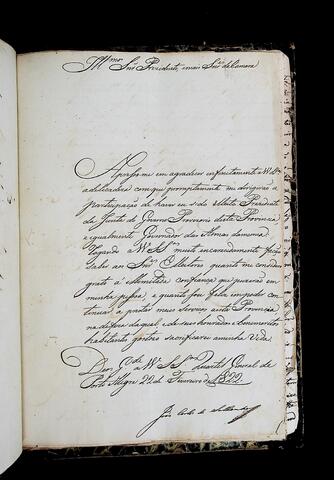 Illmos Snrs Prezidente, e mais Snrs da Camera
Apreço-me em agradecer infinitamente a VV. Sas
a delicadeza com que promptamente me dirigirão a
participação de haver eu sido Eleito Prezidente
da Junta do Governo Provizorio desta Provincia
e igualmente Governador das Armas da mesma
Rogando a VV. Sas muito encarecidamente
aos Snrs Eleitores quanto me considero
grato á confiança que puzerão em
minha pessoa, e quanto fui feliz em poder con-
tinuar a prestar meus serviços nesta Provincia
na defeza da qual e de seus honrados e benemeritos
habitantes gostozo sacrificarei a minha vida.
Deos Gde a VV. Sas Quartel General de
Porto Alegre 22 de Fevereiro de 1822
João Carlos de Saldanha